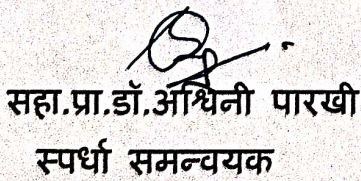 सहा.प्रा.डॉ.अश्विनी पारखी
स्पर्धा समन्वयक